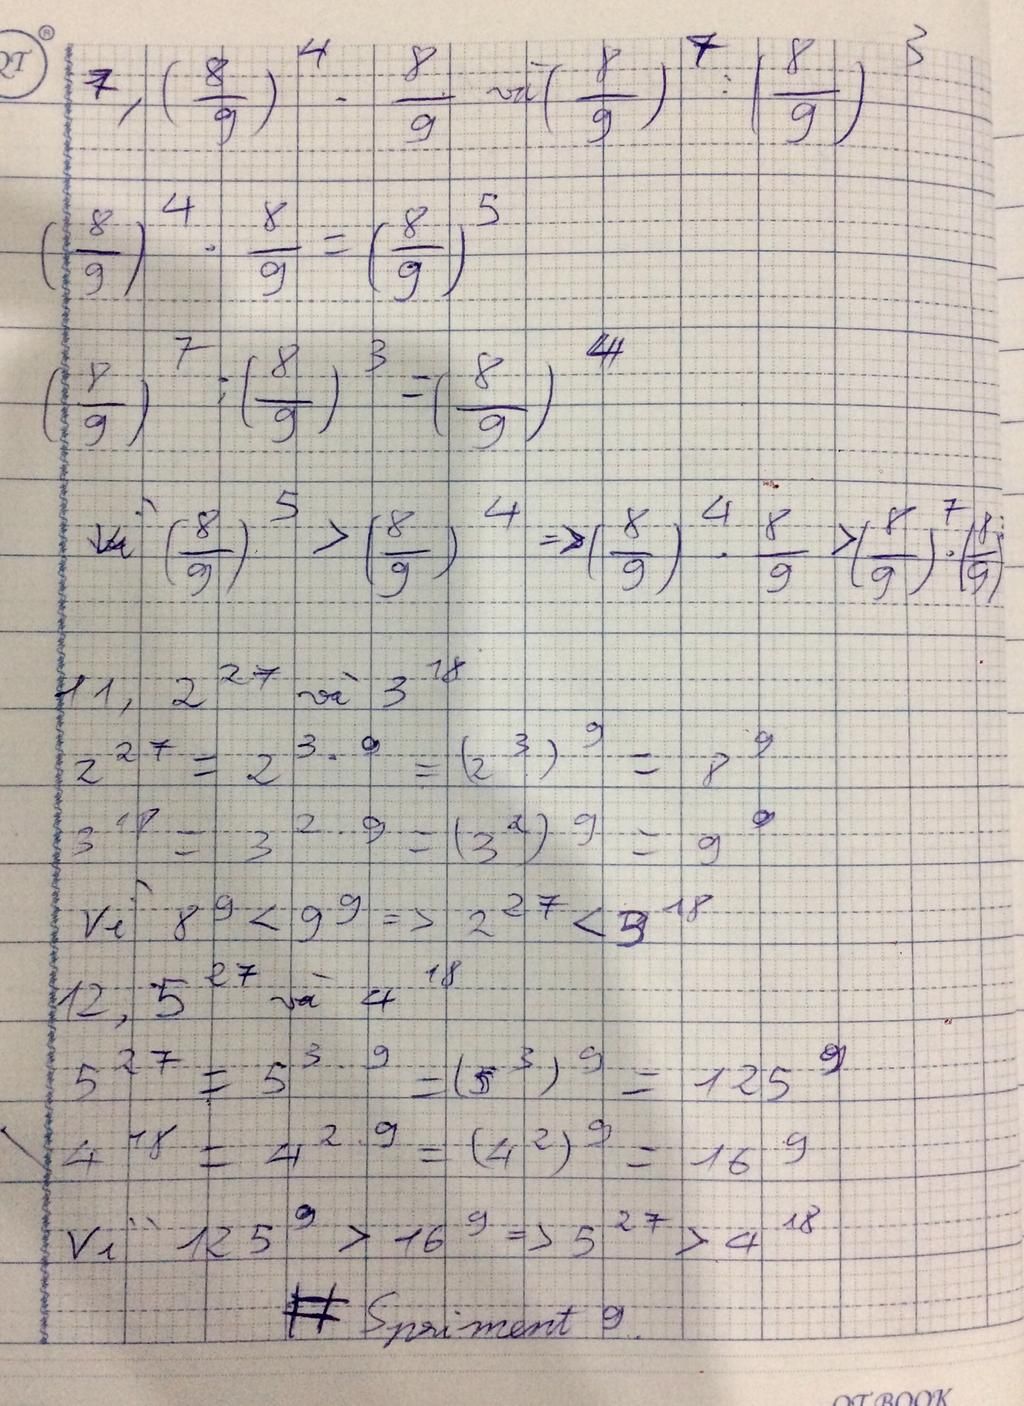 QT ®
7, (8/9)^4 . 8/9 và (8/9)^7 : (8/9)^3
(8/9)^4 . 8/9 = (8/9)^5
(8/9)^7 : (8/9)^3 = (8/9)^4
Vì (8/9)^5 > (8/9)^4 => (8/9)^4 . 8/9 > (8/9)^7 : (8/9)
11, 2^27 và 3^18
2^27 = 2^3.9 = (2^3)^9 = 8^9
3^18 = 3^2.9 = (3^2)^9 = 9^9
Vì 8^9 < 9^9 => 2^27 < 3^18
12, 5^27 và 4^18
5^27 = 5^3.9 = (5^3)^9 = 125^9
4^18 = 4^2.9 = (4^2)^9 = 16^9
Vì 125^9 > 16^9 => 5^27 > 4^18
# Spriment 9.
QT BOOK